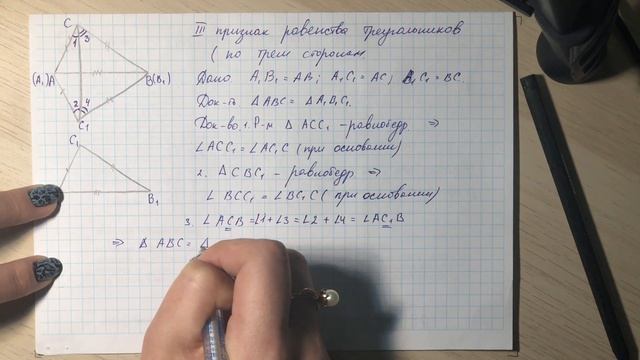 III признак равенства треугольников
( по трем сторонам
Дано A₁B₁ = AB; A₁C₁ = AC; B₁C₁ = BC.
Док-ть ΔABC = ΔA₁B₁C₁
Док-во. 1. Р-м ΔACC₁ - равнобедр. ⇒
∠ACC₁ = ∠AC₁C (при основании)
2. ΔCBC₁ - равнобедр ⇒
∠BCC₁ = ∠BC₁C (при основании)
3. ∠ACB = ∠1+∠3 = ∠2 + ∠4 = ∠AC₁B
⇒ ΔABC = Δ
C
1 3
(A₁)A
B(B₁)
2 4
C₁
C₁
B₁